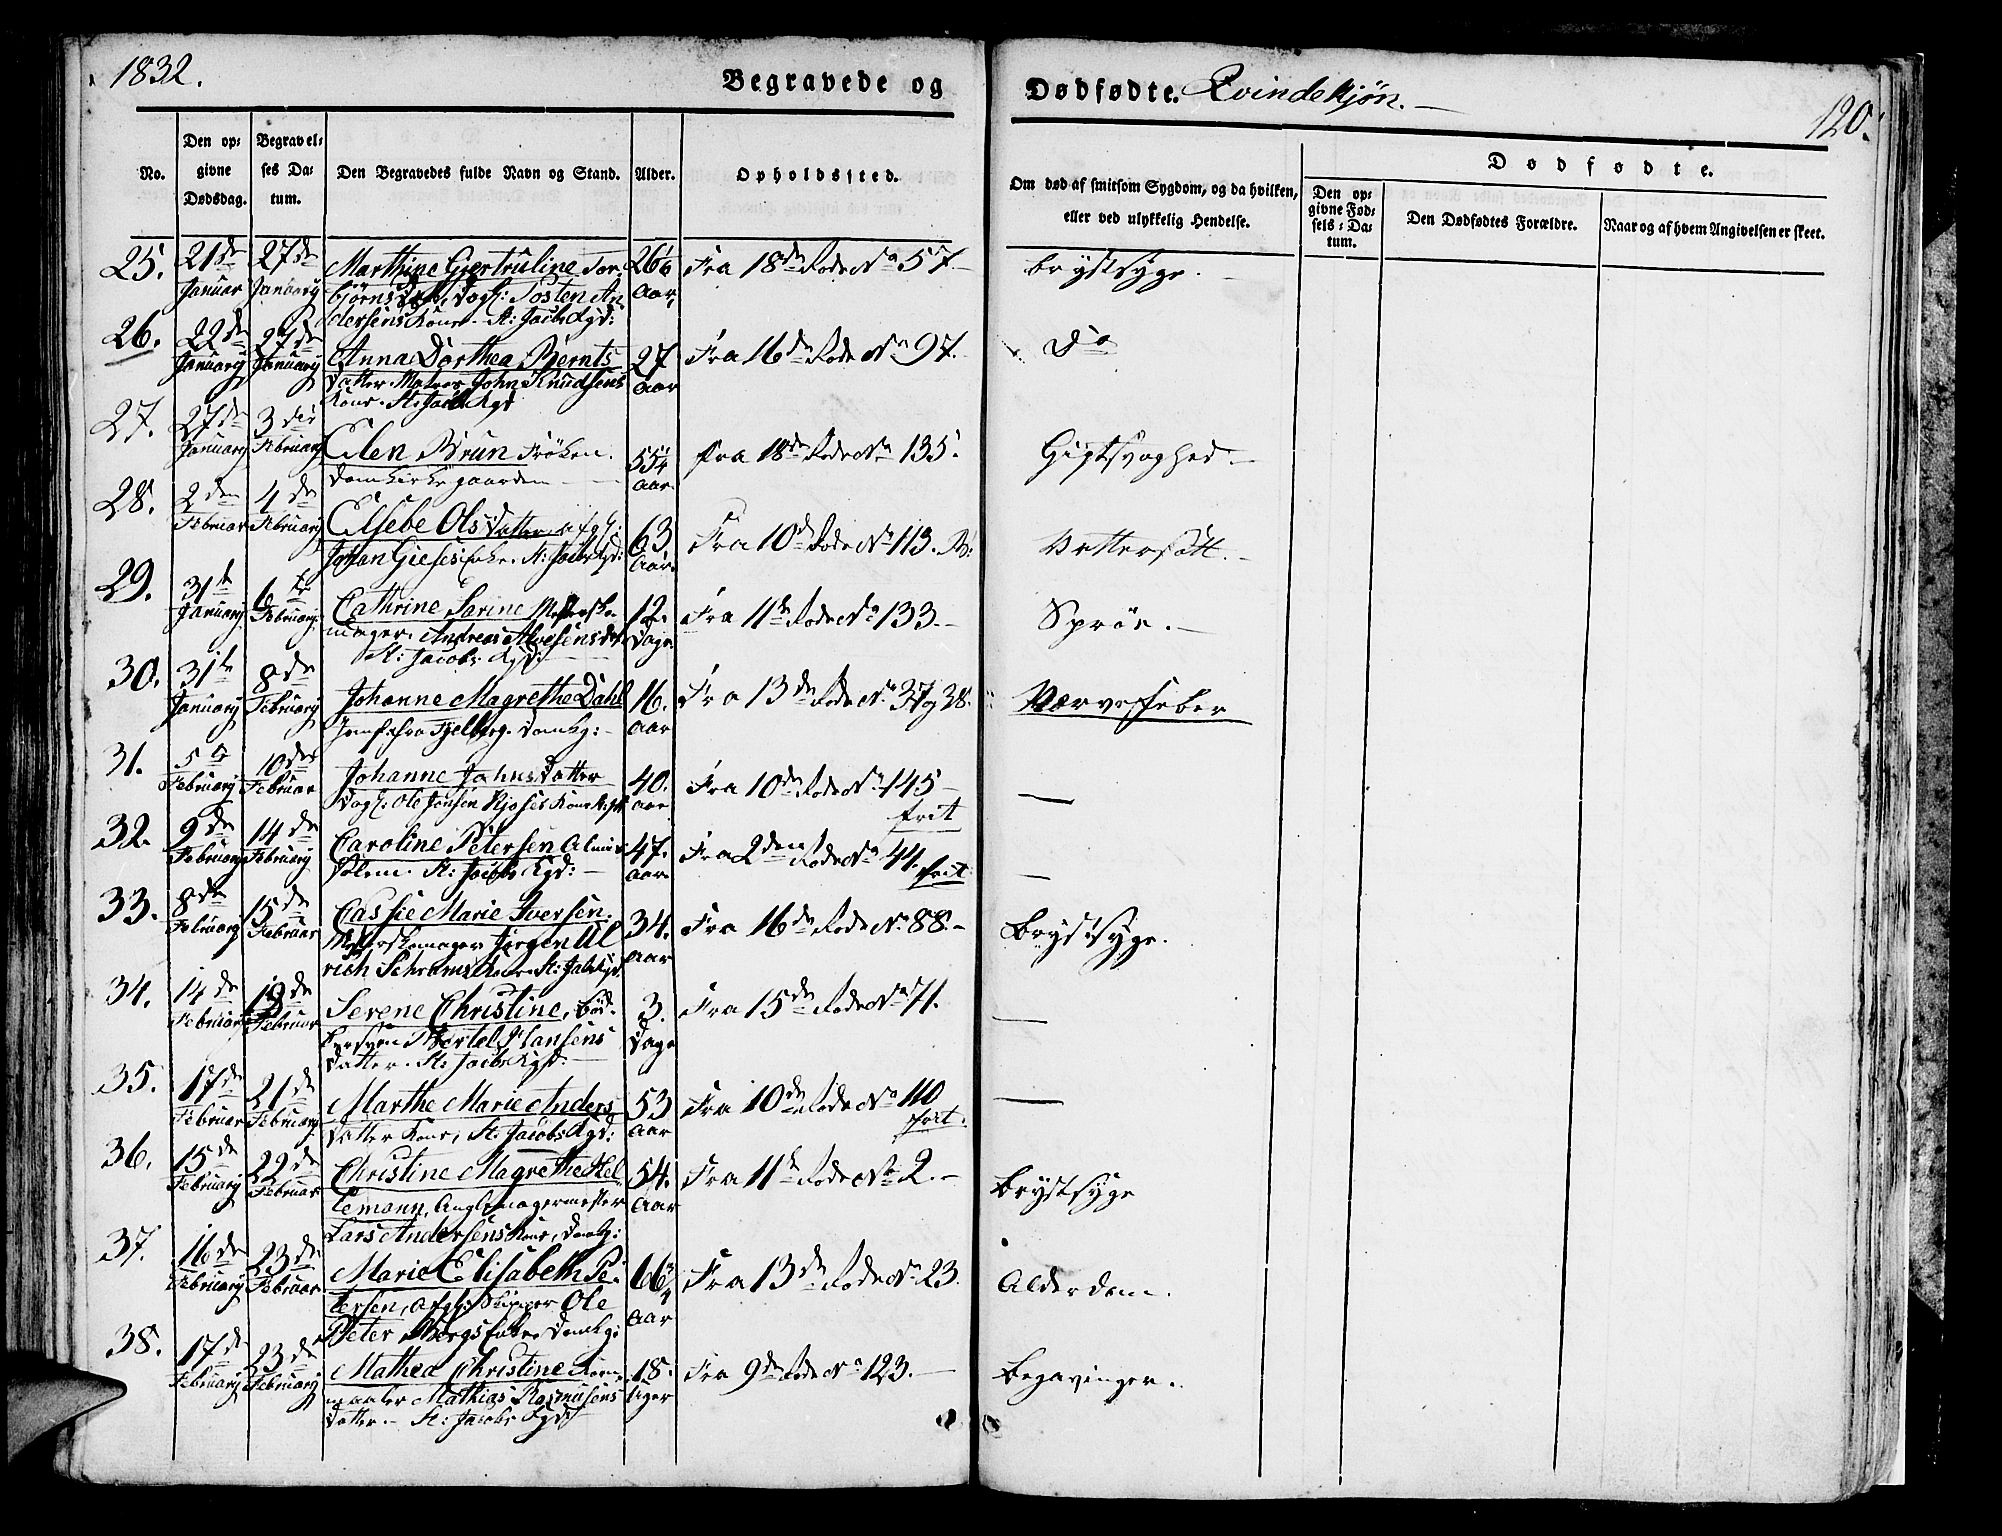 1832.
Begravede og
Dødfødte. Qvindekjøn. —
120.
No.
Den op-
givne
Dødsdag.
Begravel-
ses Da-
tum.
Den Begravedes fulde Navn og Stand.
Alder.
Opholdssted.
Om død af smitsom Sygdom, og da hvilken,
eller ved ulykkelig Hendelse.
Dødfødte.
Den op-
givne Fød-
sels-Da-
tum.
Den Dødfødtes Forældre.
Naar og af hvem Angivelsen er skeet.
25. 21de Januar 27de January
Marthine Giertruline Tor-
biørns Dat, Dagl: Tosten An-
dersens Kone. St: Jacobs Kgd:
26 Aar
Fra 18de Rode No 57. —
Brystsyge. —
26. 22de January 27de January
Anna Dorthea Bernts
datter John Knudsens
Kone. St: Jacobs Kgd
27 Aar
Fra 16de Rode No 97.
Do
27. 27de January 3die February
Elen Brun Frøken.
Domkirkegaarden —
55 Aar
fra 18de Rode No 135.
Gigtsvaghed. —
28. 2den Februar 4de February
Elsebe Olsdatter, afg:
Johan Gieses Enke. St: Jacobs Kgd:
63 Aar.
Fra 10de Rode No 113.
Vattersott. —
29. 31te January 6te February
Cathrine Sarine
mager Andreas Alvesens dtr.
St: Jacobs Kgd: —
12. Dage
Fra 11te Rode No 133. —
Sprøe. —
30. 31te January 8de February
Johanne Magrethe Dahl
Jomf: fra Fjelberg. Domkg: —
16. Aar
Fra 13de Rode No 37 og 38.
Nervefeber
31. 5te February 10de Februar
Johanne Johnsdatter
Dagl: Ole Jonsen Kjoses Kone
40. Aar
Fra 10de Rode No 145 —
frit
—
32. 9de February 14de February
Caroline Petersen Almis-
Solem. St: Jacobs Kgd: —
47. Aar.
Fra 2den Rode No 44. frit
—
33. 8de February 15de Februar
Cassie Marie Iversen.
Jørgen Ul
rich Schrams Kone. St: Jacobs Kgd.
34. Aar
Fra 16de Rode No 88. —
Brystsyge.
34. 14de Februar 18de Februar
Serene Christine, Bød-
kersven Bertel Hansens
datter. St: Jacobs Kgd: —
3. Dage
Fra 15de Rode No 71.
—
35. 17de Februar 21de February
Marthe Marie Anders
datter Kone, St: Jacobs Kgd:
53 Aar
Fra 10de Rode No 110
frit.
—
36. 15de February 22de Februar
Christine Magrethe Hel
lemann,
Lars Andersens Kone, Domkg:
54. Aar
Fra 11te Rode No 2. —
Brystsyge
37. 16de February 23de Februar
Marie Elisabeth Pe-
tersen, afgl: Skipper Ole
Peter Bergs Enke. Domkg:
66 Aar
Fra 13de Rode No 23.
Alderdom.
38. 17de February 23de February
Mathea Christine
maaler Mathias Rasmusens
datter. — St: Jacobs Kgd
18. Uger
Fra 9de Rode No 123. —
Begavinger.